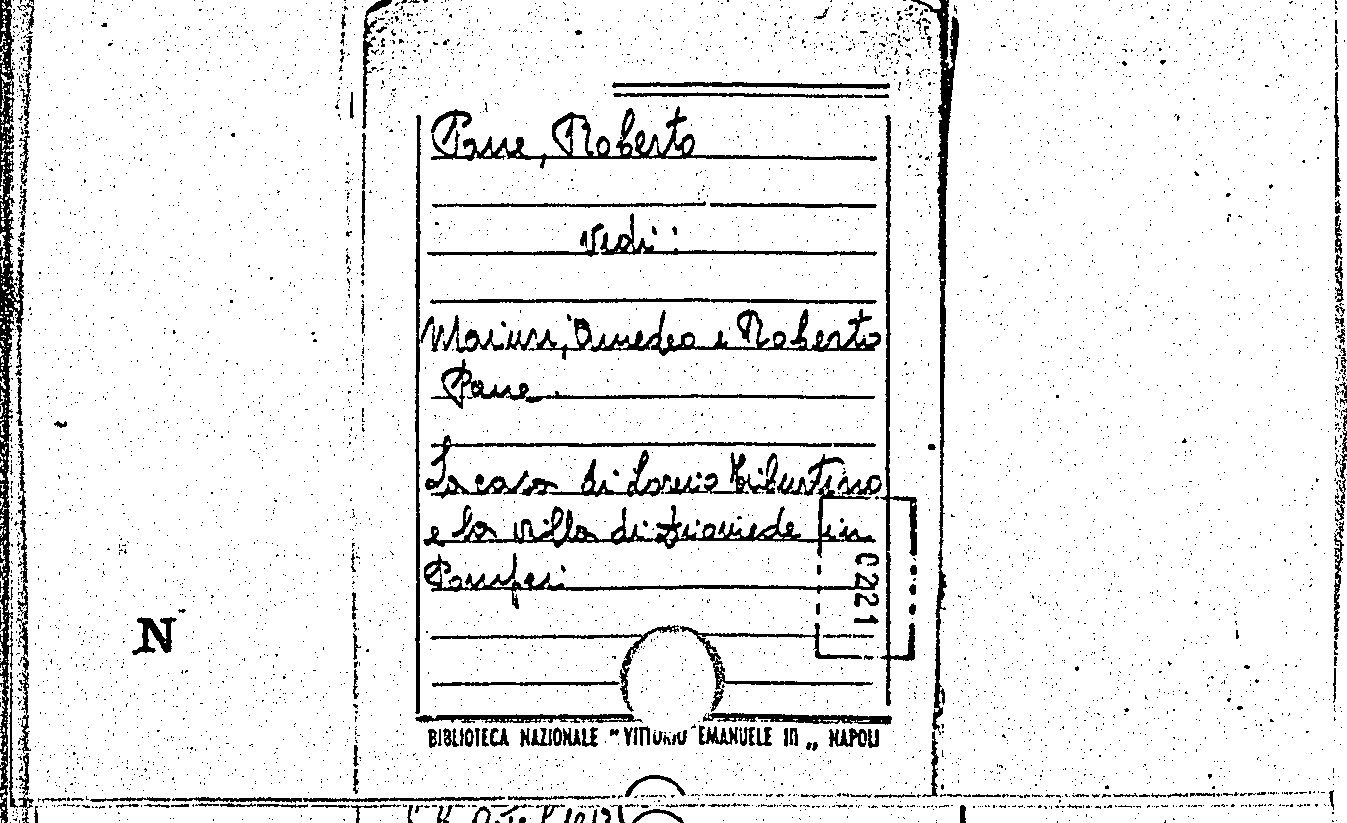 Pane, Roberto
Vedi:
Maiuri, Amedeo e Roberto
Pane.
La casa di Loreio Tiburtino
e la villa di Diomede in
Pompei
0221
N
BIBLIOTECA NAZIONALE "VITTORIO EMANUELE III„ NAPOLI